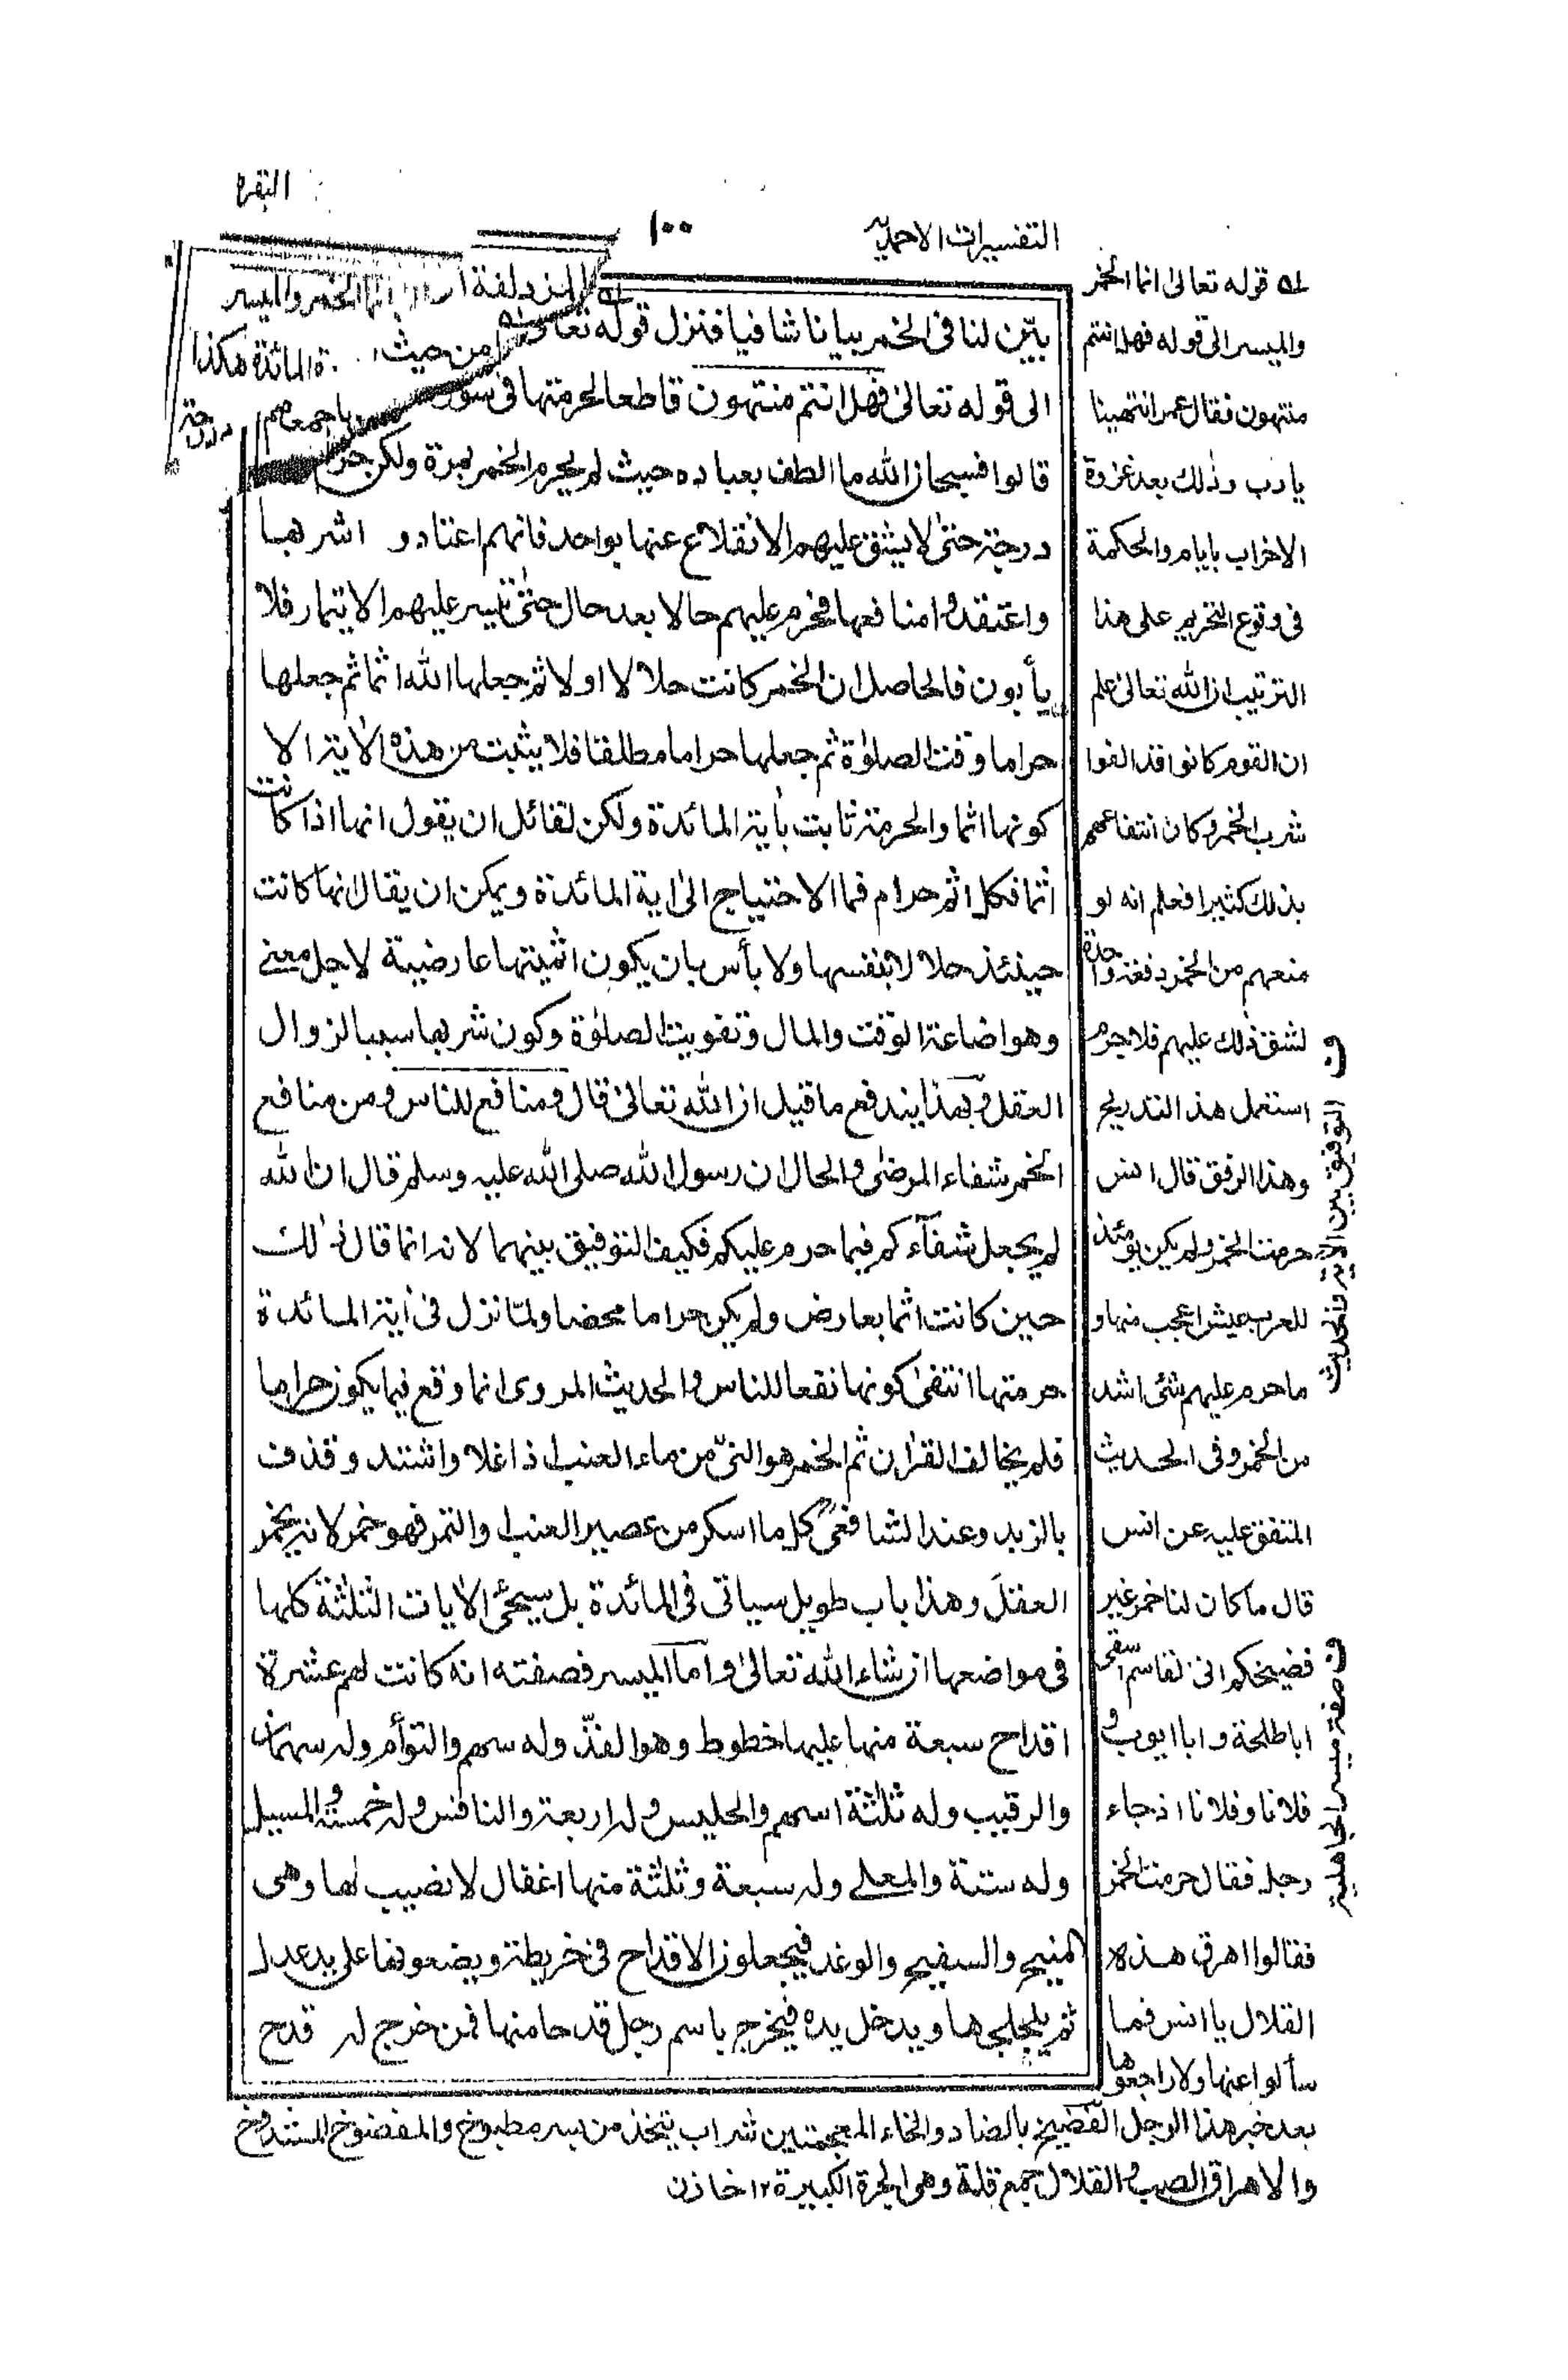 البقرة
التفسيرات الاحمدية
١٠٠
بيّن لنا فى الخمر بيانا شافيا فنزل قوله تعالى انما الخمر والميسر
الى قوله تعالىٰ فهل انتم منتهون قاطعا لحرمتها فى سورة المائدة هكذا
قالوا فسبحان الله ما الطف بعباده حيث لم يحرم الخمر بمرة ولكن حرم
درجة حتىٰ لا يشق عليهم الانقلاع عنها بواحد فانهم اعتادوا شربها
واعتقدوا منافعها فحرم عليهم حالا بعد حال حتىٰ تيسر عليهم الايتمار فلا
يأبون فالحاصل ان الخمر كانت حلالا اولا ثم جعلها الله اثما ثم جعلها
حراما وقت الصلوٰة ثم جعلها حراما مطلقا فلا يثبت من هذه الاٰية الا
كونها اثما والحرمة ثابت باٰية المائدة ولكن لقائل ان يقول انها اذا كانت
اثما فكل اثم حرام فما الاحتياج الىٰ اية المائدة ويمكن ان يقال انها كانت
حينئذ حلالا بنفسها ولا بأس بان يكون اثميتها عارضية لاجل معنے
وهو اضاعة الوقت والمال وتفويت الصلوٰة وكون شربها سببا لزوال
العقل وبهذا يندفع ما قيل ان الله تعالىٰ قال ومنافع للناس ومن منافع
الخمر شفاء المرضىٰ والحال ان رسول الله صلى الله عليه وسلم قال ان الله
لم يجعل شفآء كم فيما حرم عليكم فكيف التوفيق بينهما لانه انما قال ذٰلك
حين كانت اثما بعارض ولم يكن حراما محضا ولمّا نزل فى اٰية المائدة
حرمتها انتفىٰ كونها نفعا للناس والحديث المروى انما وقع فيما يكون حراما
فلم يخالف القراٰن ثم الخمر هو النىّ من ماء العنب اذا غلا واشتد وقذف
بالزبد وعند الشافعىؒ كل ما اسكر من عصير العنب والتمر فهو خمر لانه يخمر
العقل وهذا باب طويل سياتى فى المائدة بل سيجئ الاٰيات الثلٰثة كلها
فى مواضعها ان شاء الله تعالىٰ واما الميسر فصفته انه كانت لهم عشرة
اقداح سبعة منها عليها خطوط وهو الفذّ وله سهم والتوأم وله سهمان
والرقيب وله ثلٰثة اسهم والحليس وله اربعة والنافس وله خمسة والمسبل
وله ستة والمعلے وله سبعة وثلٰثة منها اغفال لا نصيب لها وهى
المنيح والسفيح والوغد فيجعلون الاقداح فى خريطة ويضعونها على يد عدل
ثم يجلجلها ويدخل يده فيخرج باسم رجل قدحا منها فمن خرج له قدح
لہ قوله تعالىٰ انما الخمر
والميسر الى قوله فهل انتم
منتهون فقال عمر انتهينا
يا رب وذٰلك بعد غزوة
الاحزاب بايام والحكمة
فى وقوع التحريم على هذا
الترتيب ان الله تعالىٰ علم
ان القوم كانوا قد الفوا
شرب الخمر وكان انتفاعهم
بذلك كثيرا فعلم انه لو
منعهم من الخمر دفعة واحدة
لشق ذلك عليهم فلا جرم
استعمل هذا التدريج
وهذا الرفق قال انس
حرمت الخمر ولم يكن يومئذ
للعرب عيش اعجب منها و
ما حرم عليهم شئ اشد
من الخمر وفى الحديث
المتفق عليه عن انس
قال ما كان لنا خمر غير
فضيخكم انى لقائم اسقى
ابا طلحة وابا ايوب و
فلانا وفلانا اذ جاء
رجل فقال حرمت الخمر
فقالوا اهرق هذه
القلال يا انس فما
سألوا عنها ولا راجعوها
بعد خبر هذا الرجل الفضيخ بالضاد والخاء المعجمتين شراب يتخذ من بسر مطبوخ والمفضوخ المشدوخ
والاهراق الصب والقلال جمع قلة وهى الجرة الكبيرة ١٢ خازن
ف التوفيق بين الاٰية والحديث
ف صفة ميسر الجاهلية